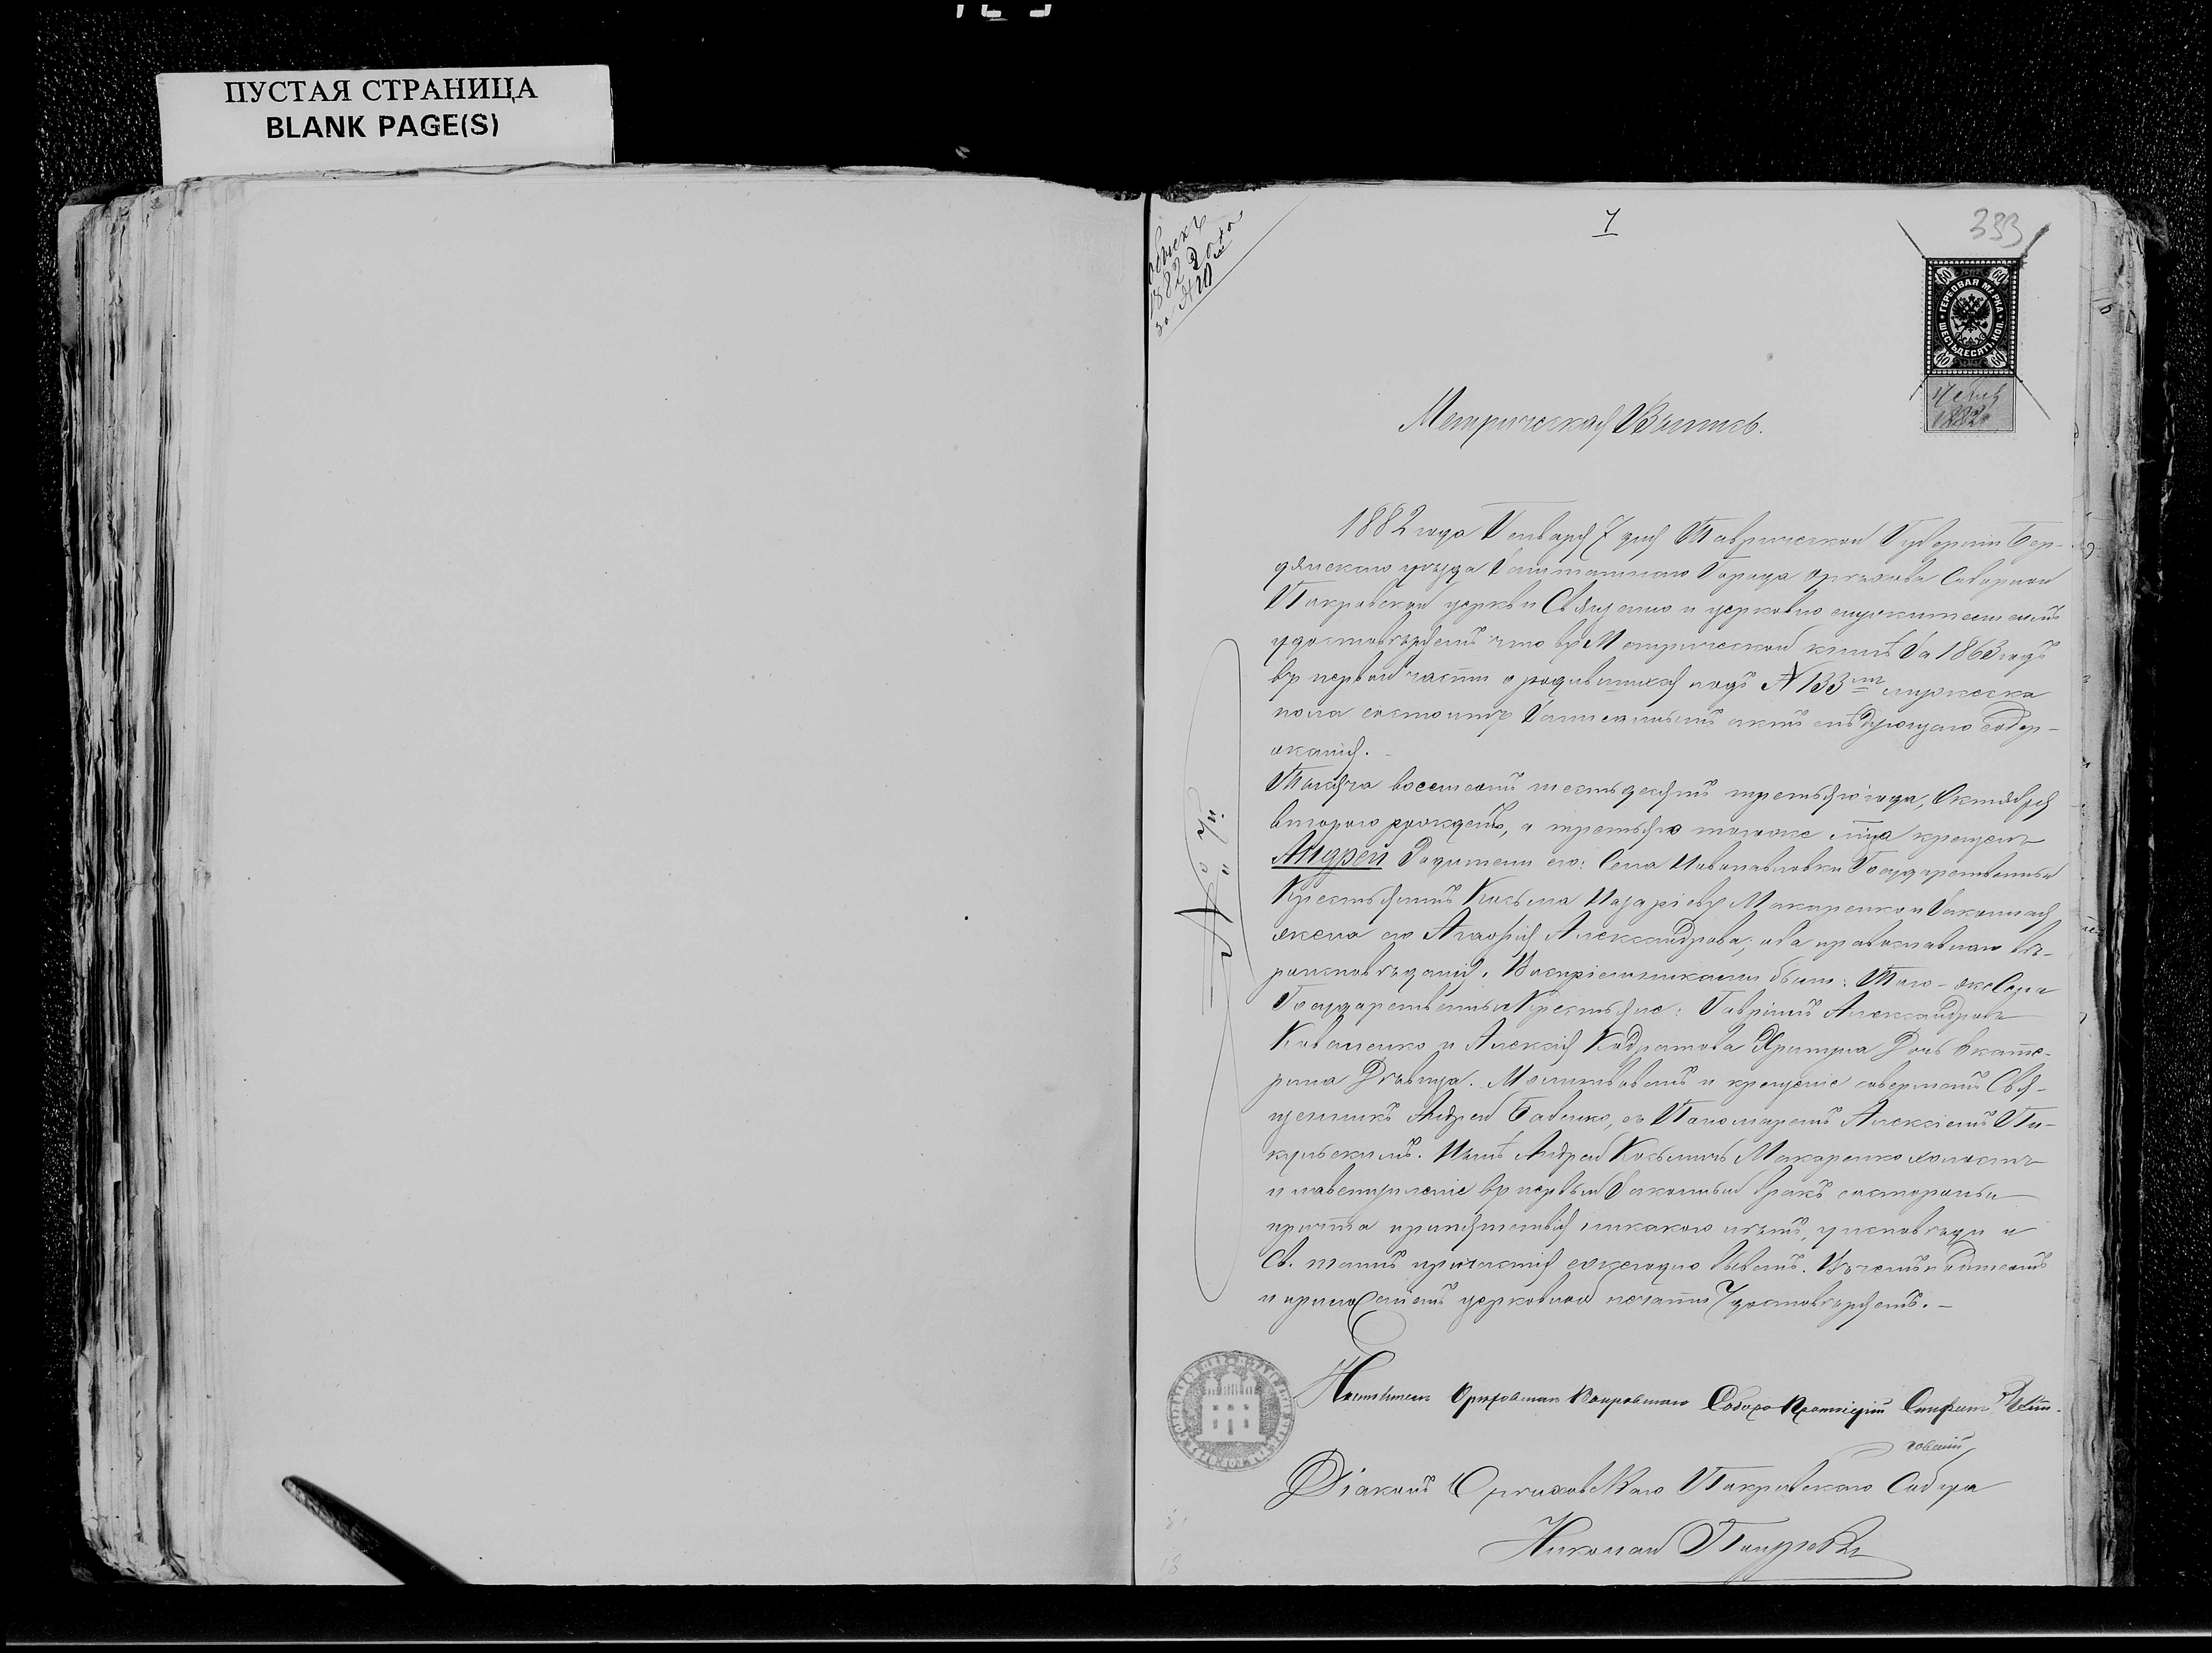 ПУСТАЯ СТРАНИЦА
BLANK PAGE(S)
1882 года
за №
333
ГЕРБОВАЯ МАРКА
ШЕСТЬДЕСЯТЪ КОП.
60 60
60 60
1882
Метрическая Выпись.
1882 года Генваря 7 дня Таврической Губерніи Бер-
дянскаго уѣзда Заштатнаго Города Орѣхова Соборной
Покровской церкви Священно и церковно служителями
удостовѣряемъ что въ Метрической книгѣ За 1863 годъ
въ первой части о родившихся подъ № 133мъ мужеска
пола состоитъ Записанный актъ слѣдующаго содер-
жанія.
Тысяча восемсотъ шестьдесятъ третьяго года, Октября
втораго рожденъ, а третьяго тогоже мца крещенъ
Андрей Родители его: Села Новопавловки Государственный
Крестьянинъ Козьма Назаріевъ Макаренко и Законная
жена его Агафія Александрова, оба православнаго вѣ-
роисповѣданія. Воспріемниками были: Того-же Села
Государственные Крестьяне: Гавріилъ Александровъ
Коваленко и Алексія Кодратова Дочь Екате-
рина Дѣвица. Молитвовалъ и крещеніе совершалъ Свя-
щенникъ Андрей Бабенко, съ Пономаремъ Алексіемъ Пи-
кульскимъ. Нынѣ Андрей Козьминъ Макаренко холостъ
и на вступленіе въ первый Законный бракъ состороны
причта припятствія никакого нѣтъ, у исповѣди и
Св. таинъ причастія ежегодно бываетъ. Въ чемъ подписомъ
и приложеніемъ церковной печати Удостовѣряемъ. —
Настоятель Орѣховскаго Покровскаго Собора Протоіерей
Діаконъ Орѣховскаго Покровскаго Собора
Николай